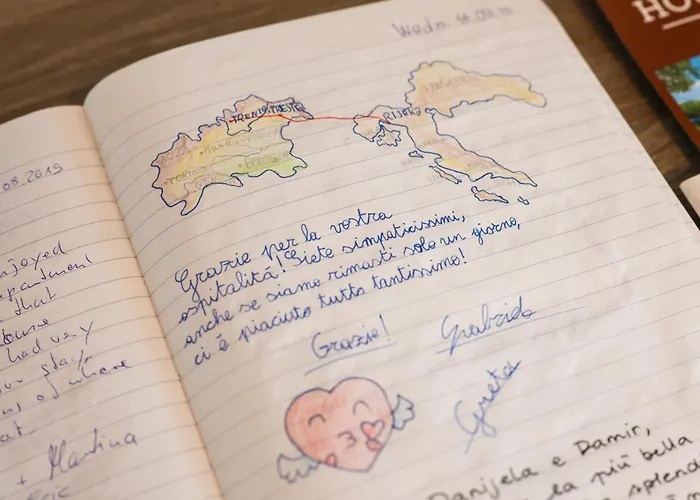 .08.2019
enjoyed
that
had very
stay,
of where
+ Martina
Wedn.
TRENTO TRIESTE
MILANO
TORINO
BOLOGNA
GENOVA
ZAGABRIA
RIJEKA
Grazie per la vostra
ospitalità! Siete simpaticissimi,
anche se siamo rimasti solo un giorno,
ci è piaciuto tutto tantissimo!
Grazie!
Greta
Danijela e Damir,
la più bella
splendi
HO